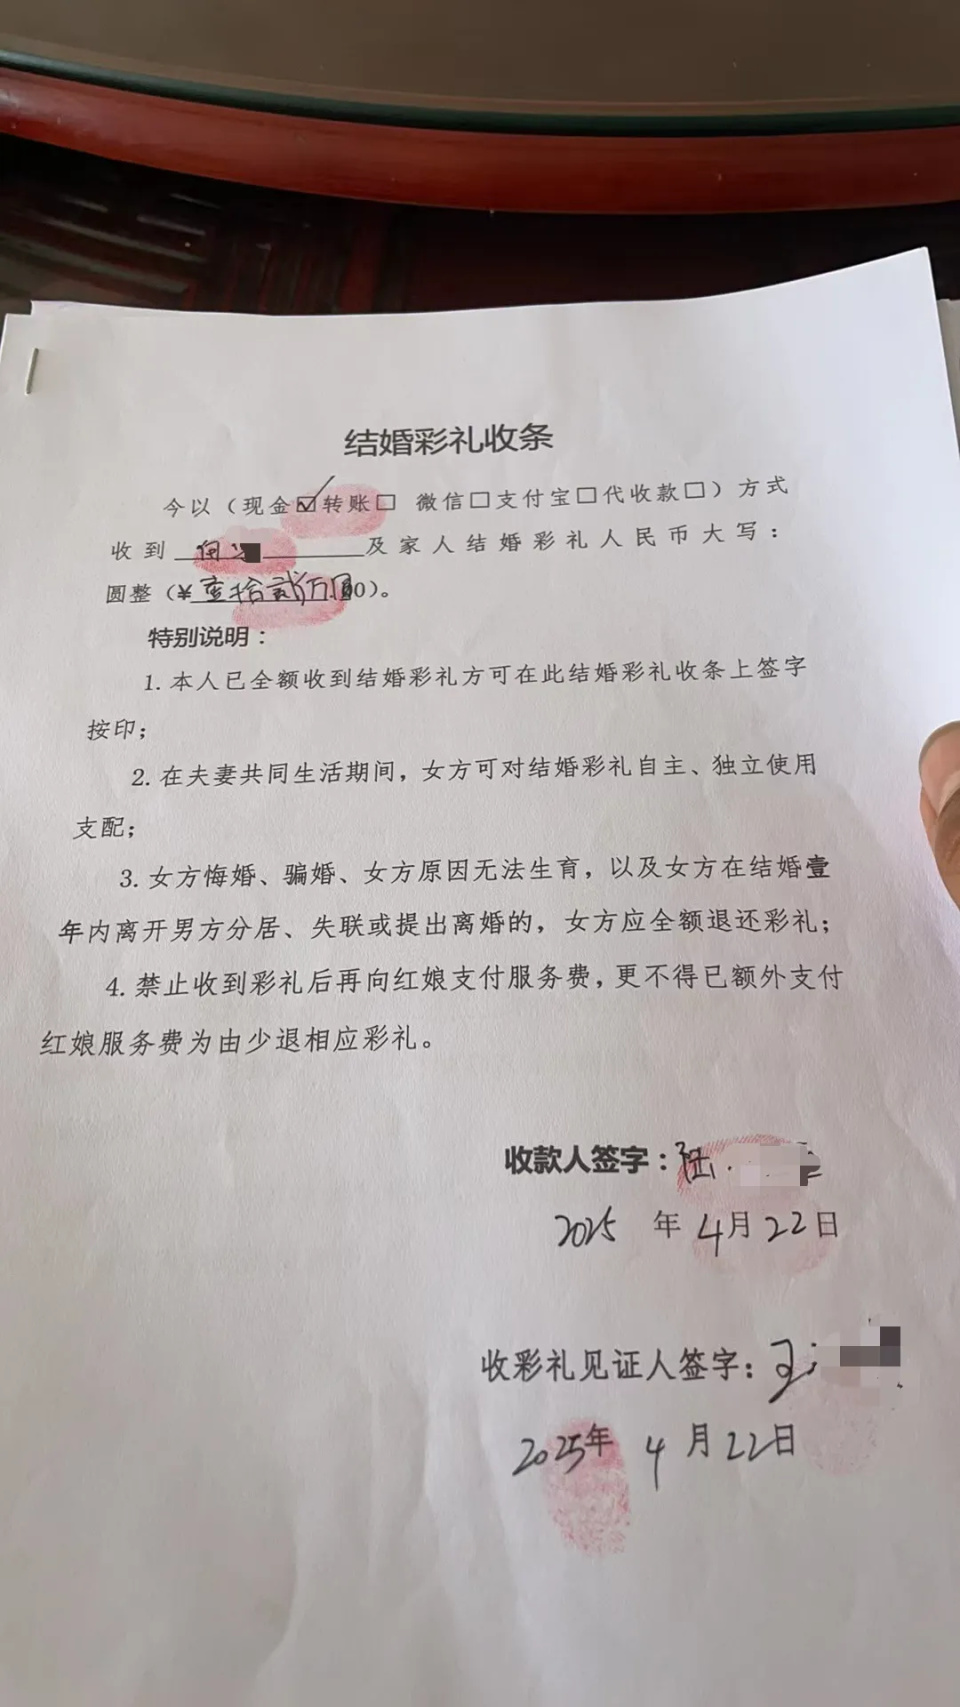 结婚彩礼收条
今以（现金☑转账□ 微信□支付宝□代收款□）方式
收到 及家人结婚彩礼人民币大写：
圆整（¥壹拾贰万圆00）。
特别说明：
1.本人已全额收到结婚彩礼方可在此结婚彩礼收条上签字
按印；
2.在夫妻共同生活期间，女方可对结婚彩礼自主、独立使用
支配；
3.女方悔婚、骗婚、女方原因无法生育，以及女方在结婚壹
年内离开男方分居、失联或提出离婚的，女方应全额退还彩礼；
4.禁止收到彩礼后再向红娘支付服务费，更不得已额外支付
红娘服务费为由少退相应彩礼。
收款人签字：陆
2025 年 4月22日
收彩礼见证人签字：
2025年 4 月22日